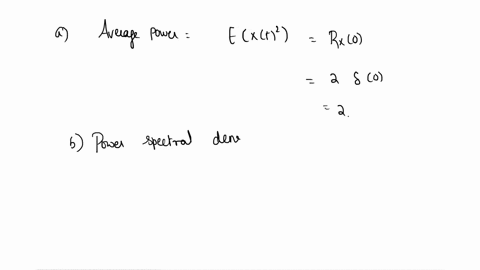 a) Average power = E(X(t)²) = Rx(0)
= 2 δ(0)
= 2.
b) Power spectral dens